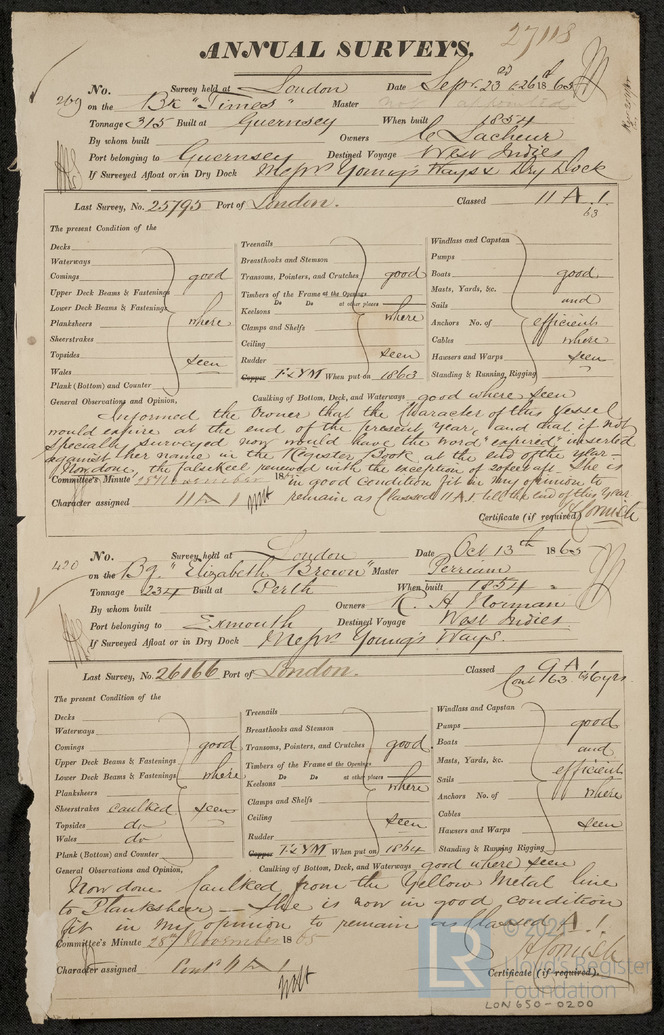 27118
ANNUAL SURVEYS.
269 No. Survey held at London Date Sepr. 23rd & 26th 1865
on the Bk "Times" Master not appointed
Tonnage 315 Built at Guernsey When built 1854
By whom built Owners C Lacheur
Port belonging to Guernsey Destined Voyage West Indies
If Surveyed Afloat or in Dry Dock Messrs Young's Ways & Dry Dock
Last Survey, No. 25795 Port of London. Classed 11 A.1.
63
The present Condition of the
Decks
Waterways
Comings good
Upper Deck Beams & Fastenings
Lower Deck Beams & Fastenings
Planksheers where
Sheerstrakes
Topsides seen
Wales
Plank (Bottom) and Counter
Treenails
Breasthooks and Stemson
Transoms, Pointers, and Crutches good
Timbers of the Frame at the Openings
Do Do at other places
Keelsons where
Clamps and Shelfs
Ceiling
Rudder seen
Copper F&YM When put on 1863
Windlass and Capstan
Pumps
Boats good
Masts, Yards, &c.
Sails and
Anchors No. of efficient
Cables where
Hawsers and Warps seen
Standing & Running Rigging
General Observations and Opinion, Caulking of Bottom, Deck, and Waterways good where seen
Informed the Owner that the Character of this Vessel
would expire at the end of the present year, and that if not
Specially surveyed now would have the word "expired" inserted
against her name in the Register Book at the end of the year—
Now done, the falsekeel renewed with the exception of 20 feet aft. She is
Committee's Minute November 186 in good Condition fit in my opinion to
Character assigned 11 A 1 remain as Classed 11 A.1 till the end of this year
Certificate (if required) Cornish
420 No. Survey held at London Date Oct 13th 1865
on the Bg. "Elizabeth Brown" Master Perriam
Tonnage 234 Built at Perth When built 1854
By whom built Owners R. H Norman
Port belonging to Exmouth Destined Voyage West Indies
If Surveyed Afloat or in Dry Dock Messrs Young's Ways.
Last Survey, No. 26166 Port of London. Classed 9 A 1
Cont 63 6 yrs
The present Condition of the
Decks
Waterways
Comings good
Upper Deck Beams & Fastenings
Lower Deck Beams & Fastenings where
Planksheers
Sheerstrakes caulked seen
Topsides do
Wales do
Plank (Bottom) and Counter
Treenails
Breasthooks and Stemson
Transoms, Pointers, and Crutches good
Timbers of the Frame at the Openings
Do Do at other places
Keelsons where
Clamps and Shelfs
Ceiling seen
Rudder
Copper F&YM When put on 1864
Windlass and Capstan
Pumps good
Boats and
Masts, Yards, &c.
Sails efficient
Anchors No. of where
Cables
Hawsers and Warps seen
Standing & Running Rigging
General Observations and Opinion, Caulking of Bottom, Deck, and Waterways good where seen
Now done Caulked from the Yellow Metal line
to Planksheer — She is now in good condition
fit in my opinion to remain as Classed A.1.
Committee's Minute 28th November 1865
Character assigned Contd A 1
Cornish
Certificate (if required).
LR
© 2021
Lloyd's Register
Foundation
LON650-0200